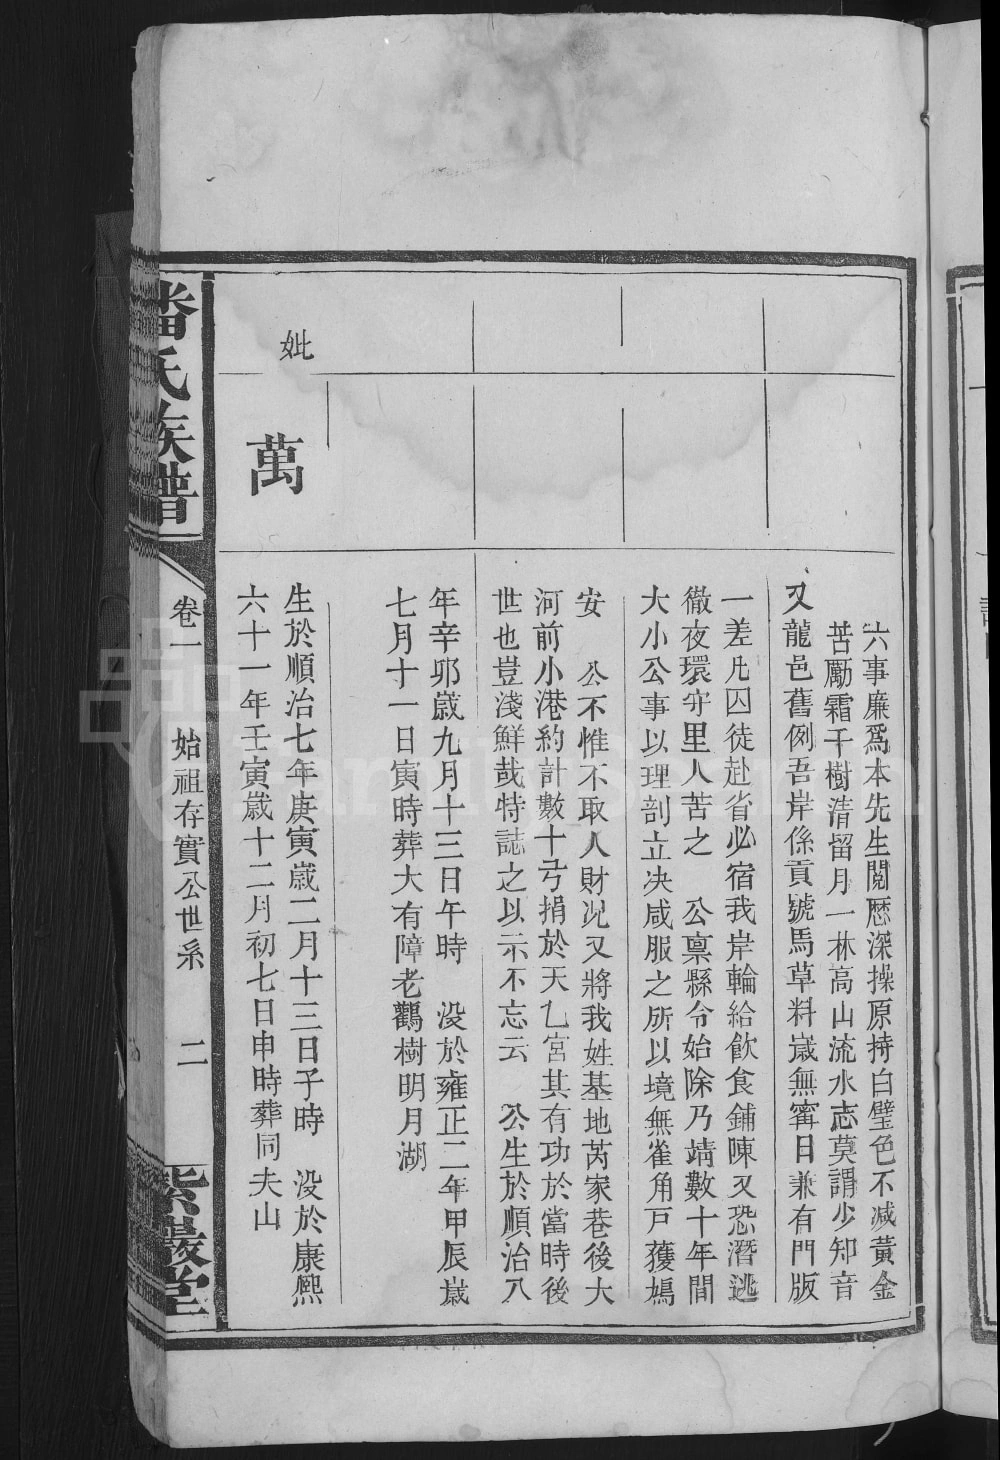 六事廉爲本先生閱歷深操原持白璧色不減黃金
苦勵霜千樹清留月一林高山流水志莫謂少知音
又龍邑舊例吾岸係貢號馬草料嵗無寗日兼有門版
一差凡囚徒赴省必宿我岸輪給飲食鋪陳又恐潛逃
徹夜環守里人苦之　公禀縣令始除乃靖數十年間
大小公事以理剖立决咸服之所以境無雀角戸蒦鳩
安　公不惟不取人財况又將我姓基地芮家巷後大
河前小港約計數十弓捐於天乙宮其有功於當時後
世也豈淺鮮哉特誌之以示不忘云　公生於順治八
年辛卯嵗九月十三日午時　没於雍正二年甲辰嵗
七月十一日寅時葬大有障老鸛樹明月湖
妣
萬
生於順治七年庚寅嵗二月十三日子時　没於康熙
六十一年壬寅嵗十二月初七日申時葬同夫山
潘氏族譜
卷一
始祖存實公世系
二
紫巖堂